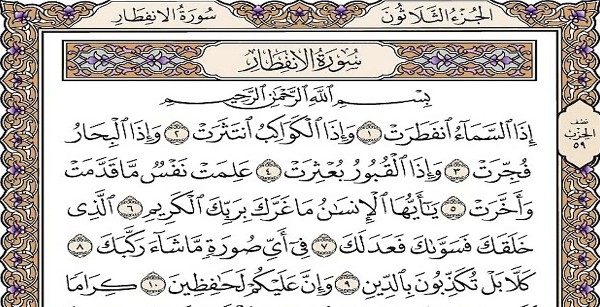 الجُزْءُ الثَّلَاثُونَ
سُورَةُ الانفِطَارِ
سُورَةُ الانفِطَارِ
بِسْمِ اللَّهِ الرَّحْمَٰنِ الرَّحِيمِ
إِذَا السَّمَاءُ انفَطَرَتْ ١ وَإِذَا الْكَوَاكِبُ انتَثَرَتْ ٢ وَإِذَا الْبِحَارُ
نصف الحزب ٥٩
فُجِّرَتْ ٣ وَإِذَا الْقُبُورُ بُعْثِرَتْ ٤ عَلِمَتْ نَفْسٌ مَّا قَدَّمَتْ
وَأَخَّرَتْ ٥ يَا أَيُّهَا الْإِنسَانُ مَا غَرَّكَ بِرَبِّكَ الْكَرِيمِ ٦ الَّذِي
خَلَقَكَ فَسَوَّاكَ فَعَدَلَكَ ٧ فِي أَيِّ صُورَةٍ مَّا شَاءَ رَكَّبَكَ ٨
كَلَّا بَلْ تُكَذِّبُونَ بِالدِّينِ ٩ وَإِنَّ عَلَيْكُمْ لَحَافِظِينَ ١٠ كِرَامًا